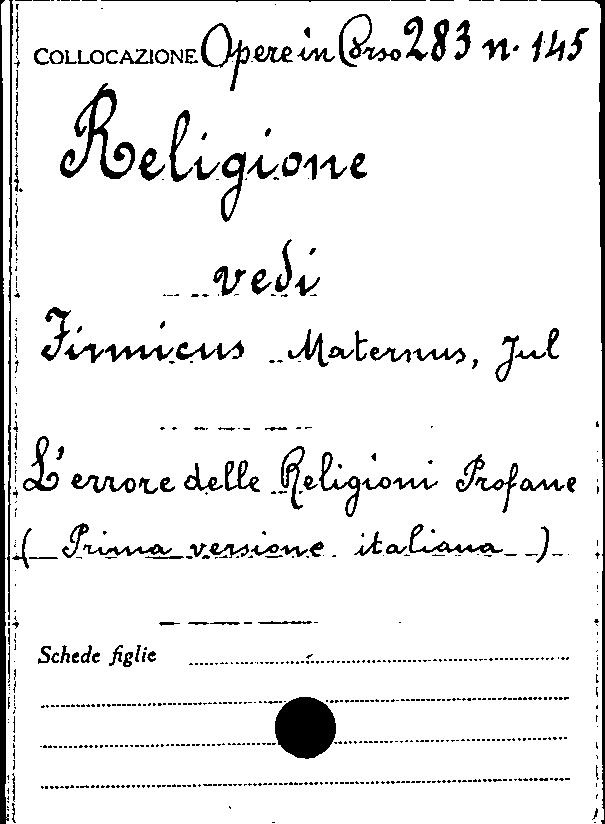 COLLOCAZIONE Opere in Corso 283 n. 145
Religione
vedi
Firmicus Maternus, Jul
L'errore delle Religioni Profane
( Prima versione italiana )
Schede figlie